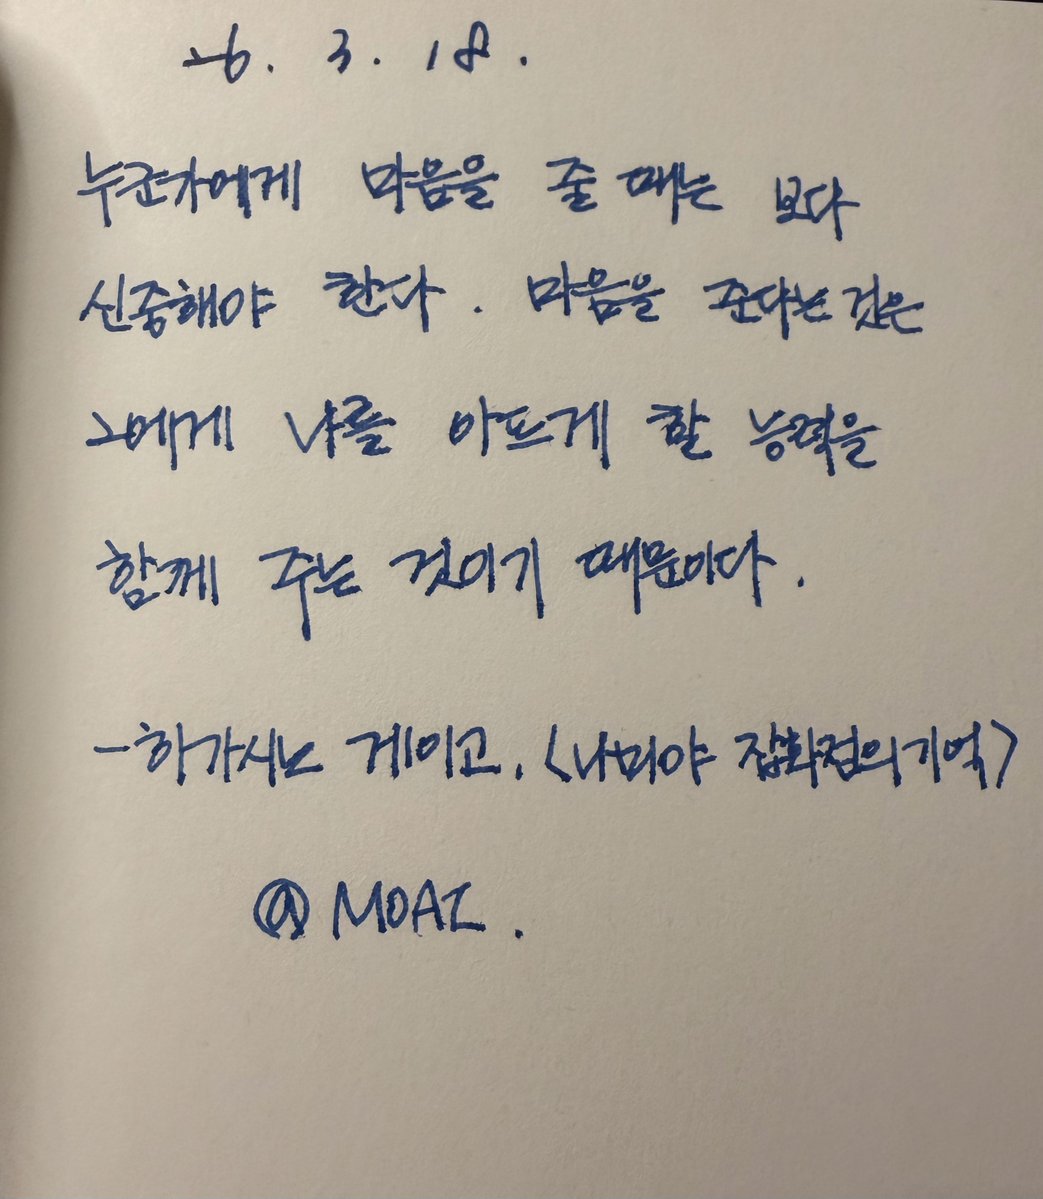 26. 3. 18.
누군가에게 마음을 줄 때는 보다
신중해야 한다. 마음을 준다는 것은
그에게 나를 아프게 할 능력을
함께 주는 것이기 때문이다.
-히가시노 게이고. <나미야 잡화점의 기억>
@MOAI.